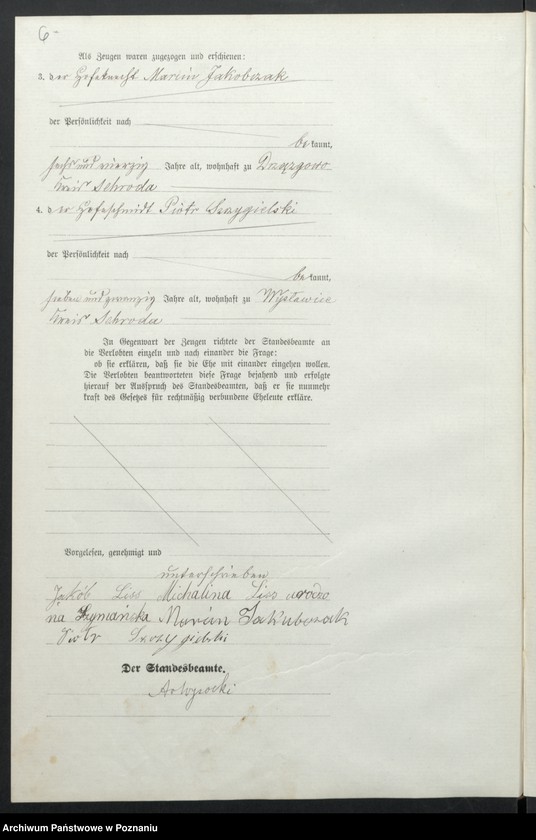 6
Als Zeugen waren zugezogen und erschienen:
3. der Hofeknecht Marcin Jakobczak
der Persönlichkeit nach
bekannt,
sechs und vierzig Jahre alt, wohnhaft zu Drzązgowo
Kreis Schroda
4. der Hofeschmidt Piotr Szczygielski
der Persönlichkeit nach
bekannt,
sieben und zwanzig Jahre alt, wohnhaft zu Wysławice
Kreis Schroda
In Gegenwart der Zeugen richtete der Standesbeamte an
die Verlobten einzeln und nach einander die Frage:
ob sie erklären, daß sie die Ehe mit einander eingehen wollen.
Die Verlobten beantworteten diese Frage bejahend und erfolgte
hierauf der Ausspruch des Standesbeamten, daß er sie nunmehr
kraft des Gesetzes für rechtmäßig verbundene Eheleute erkläre.
Vorgelesen, genehmigt und
unterschrieben
Jakób Liss Michalina Liss urodzo
na Szymańcka Marcin Jakubczak
Piotr
Der Standesbeamte.
Archiwum Państwowe w Poznaniu